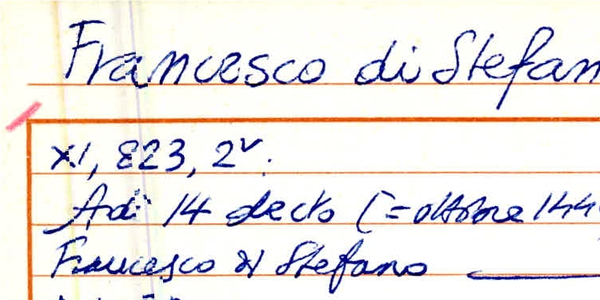 Francesco di Stefan
XI, 823, 2v.
Adi 14 decto (= ottobre 144
Francesco di Stefano